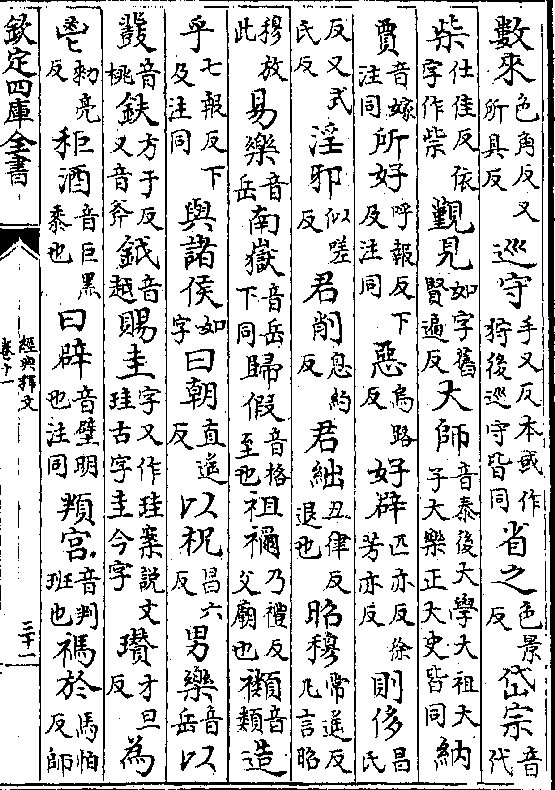 數來色角反又所具反巡守手又反本或作狩後巡守皆同省之色景反岱宗音代
柴仕佳反依字作祡覲見如字舊賢遍反大師音泰後大學大祖大子大樂正大史皆同納
賈音嫁注同所好呼報反下及注同惡烏路反好辟匹亦反徐芳亦反則侈昌氏
反又式氏反淫邪似嗟反君削息約反君絀丑律反退也昭穆常遥反凡言昭
穆放此易樂音岳南嶽音岳下同歸假音格至也祖禰乃禮反父廟也禷音類造
乎七報反下及注同與諸侯如字曰朝直遥反以柷昌六反男樂音岳以
鼗音桃鈇方于反又音斧鉞音越賜圭字又作珪案說文珪古字圭今字瓚才旦反為
鬯勑亮反秬酒音巨黑黍也曰辟音璧明也注同頖宮音判班也禡於馬怕反師
欽定四庫全書
經典釋文
卷十一
二十二